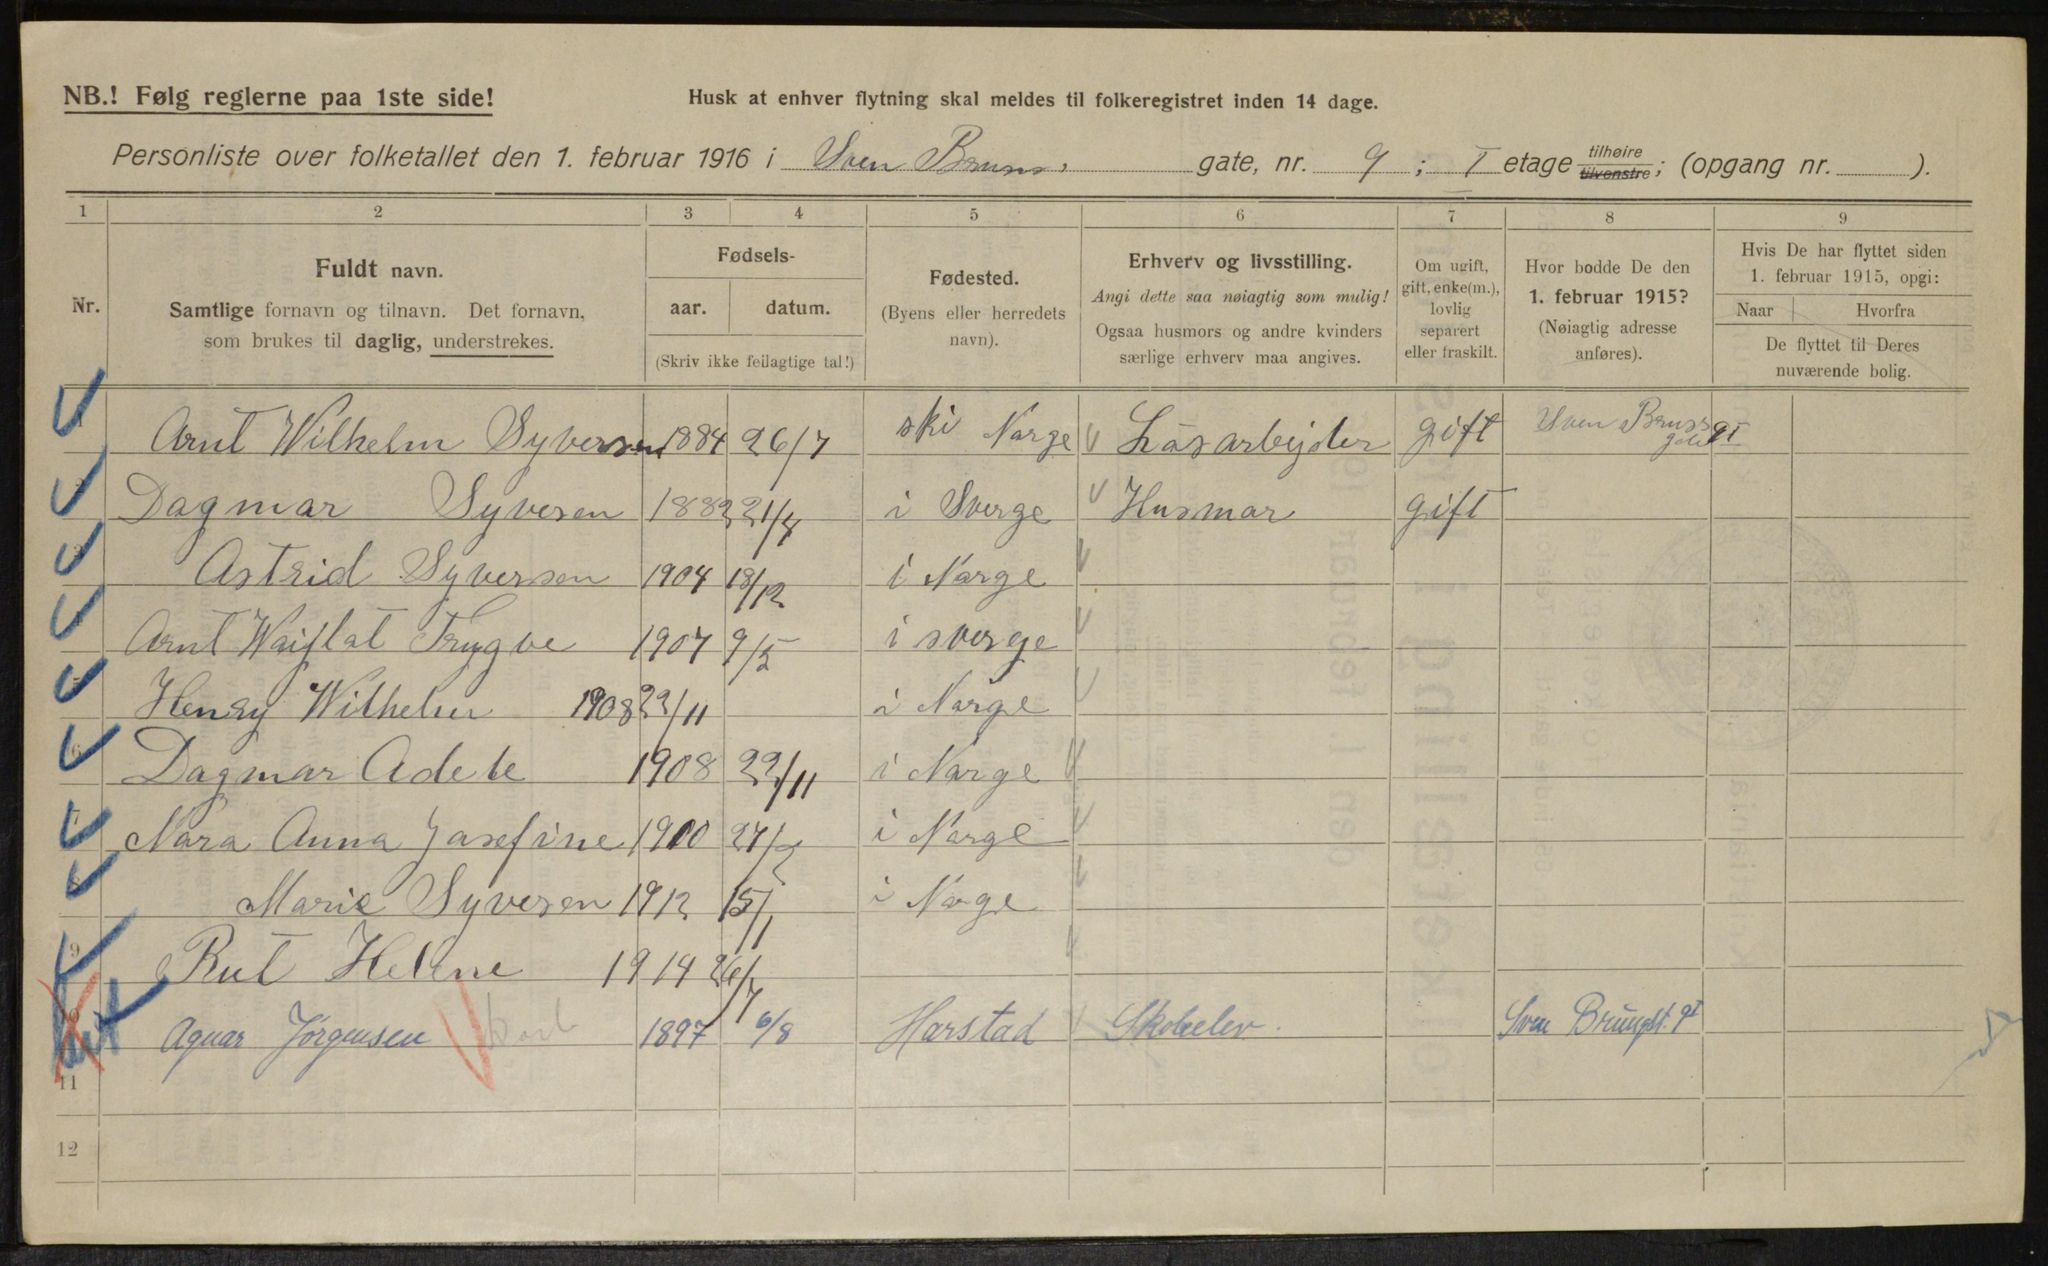 NB.! Følg reglerne paa 1ste side!
Husk at enhver flytning skal meldes til folkeregistret inden 14 dage.
Personliste over folketallet den 1. februar 1916 i Sven Bruns gate, nr. 9; I etage tilhøire tilvenstre; (opgang nr. ).
1 2 3 4 5 6 7 8 9
Nr.
Fuldt navn.
Samtlige fornavn og tilnavn. Det fornavn,
som brukes til daglig, understrekes.
Fødsels-
aar. datum.
(Skriv ikke feilagtige tal!)
Fødested.
(Byens eller herredets
navn).
Erhverv og livsstilling.
Angi dette saa nøiagtig som mulig!
Ogsaa husmors og andre kvinders
særlige erhverv maa angives.
Om ugift,
gift, enke(m.),
lovlig
separert
eller fraskilt.
Hvor bodde De den
1. februar 1915?
(Nøiagtig adresse
anføres).
Hvis De har flyttet siden
1. februar 1915, opgi:
Naar Hvorfra
De flyttet til Deres
nuværende bolig.
Arnt Wilhelm Syversen 1884 26/7 ski Norge Løsarbejder gift Sven Bruns gate 9 I
Dagmar Syvesen 1882 21/8 i Sverge Husmor gift
3 Astrid Syversen 1904 18/12 i Norge
Arnt Trygve 1907 9/5 i sverge
5 Henry Wilhelm 1908 22/11 i Norge
6 Dagmar Adele 1908 22/11 i Norge
7 Nora Anna Josefine 1910 27/2 i Norge
8 Marie Syvesen 1912 15/1 i Norge
9 Rut Helene 1914 26/7
10 Agnar Jørgensen 1897 6/8 Harstad Sven Brunsgt. 9 I
11
12